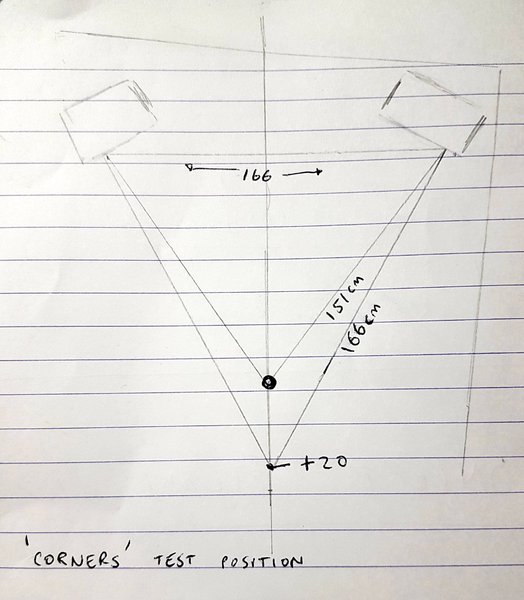 166
151cm
166cm
+20
'CORNERS' TEST POSITION